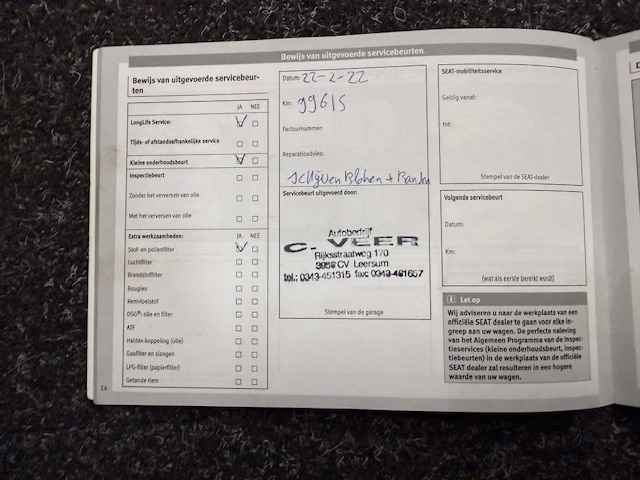 Bewijs van uitgevoerde servicebeurten
Bewijs van uitgevoerde servicebeur-
ten
JA NEE
LongLife Service:
Tijds- of afstandsafhankelijke service
Kleine onderhoudsbeurt
Inspectiebeurt
Zonder het verversen van olie
Met het verversen van olie
Extra werkzaamheden: JA NEE
Stof- en pollenfilter
Luchtfilter
Brandstoffilter
Bougies
Remvloeistof
DSG®: olie en filter
ATF
Haldex-koppeling (olie)
Gasfilter en slangen
LPG-filter (papierfilter)
Getande riem
Datum: 22-2-22
Km: 99615
Factuurnummer:
Reparatieadvies:
schijven Bloken + Banden
Servicebeurt uitgevoerd door:
Autobedrijf
C. VEER
Rijksstraatweg 170
3956 CV Leersum
tel.: 0343-451315 fax: 0343-461657
Stempel van de garage
SEAT-mobiliteitsservice
Geldig vanaf:
tot:
Stempel van de SEAT-dealer
Volgende servicebeurt
Datum:
Km:
(wat als eerste bereikt word)
i Let op
Wij adviseren u naar de werkplaats van een
officiële SEAT dealer te gaan voor elke in-
greep aan uw wagen. De perfecte naleving
van het Algemeen Programma van de Inspec-
tieservices (kleine onderhoudsbeurt, inspec-
tiebeurten) in de werkplaats van de officiële
SEAT dealer zal resulteren in een hogere
waarde van uw wagen.